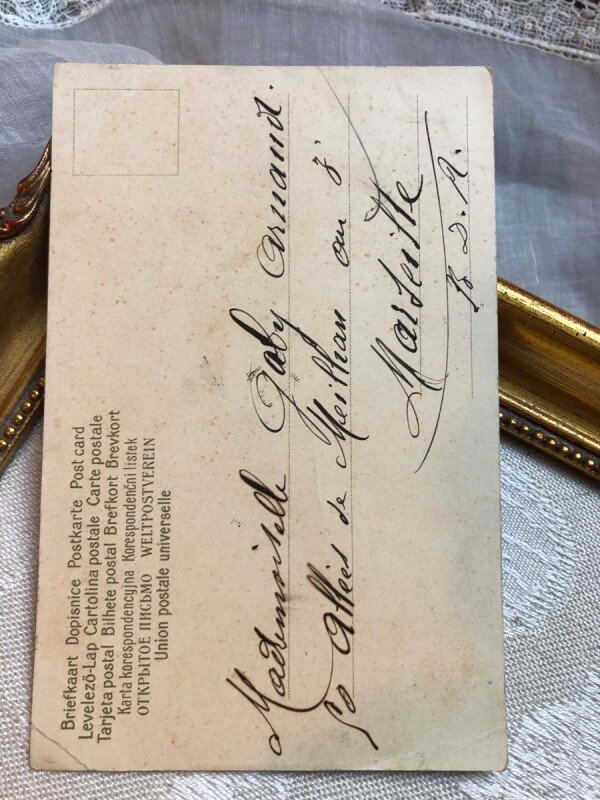 Briefkaart Dopisnice Postkarte Post card
Levelező-Lap Cartolina postale Carte postale
Tarjeta postal Bilhete postal Brefkort Brevkort
Karta korespondencyjna Korespondenční listek
ОТКРЫТОЕ ПИСЬМО WELTPOSTVEREIN
Union postale universelle
Mademoiselle Gaby Arnaud.
50 Allées de Meilhan au 3ᵉ
Marseille
B. D. R.